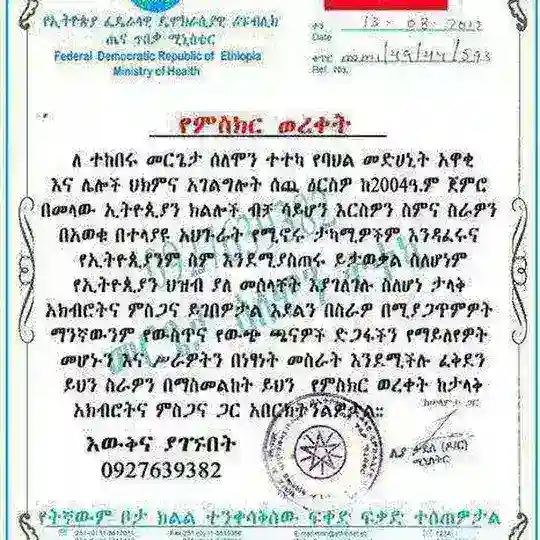 የኢትዮጵያ ፌዴራላዊ ዴሞክራሲያዊ ሪፐብሊክ
ጤና ጥበቃ ሚኒስቴር
Federal Democratic Republic of Ethiopia
Ministry of Health
ቀን 13-02-2012
Date
ቁጥር
Ref. No.
የምስክር ወረቀት
ለ ተከበሩ መርጌታ ሰለሞን ተተካ የባህል መድሀኒት አዋቂ
እና ሌሎች ህክምና አገልግሎት ሰጪ ዕርስዎ ከ2004ዓ.ም ጀምሮ
በመላው ኢትዮጲያን ክልሎች ብቻ ሳይሆን እርስዎን ስምና ስራዎን
በአወቁ በተላያዩ አህጉራት የሚኖሩ ታካሚዎችም እንዳፈሩና
የኢትዮጲያንም ስም እንደሚያስጠሩ ይታወቃል ስለሆነም
የኢትዮጲያን ህዝብ ያለ መሰላቸት እያገለገሉ ስለሆነ ታላቅ
አክብሮትና ምስጋና ይገበዎታል እደልን በስራዎ በሚያጋጥምዎት
ማንኛውንም የውስጥና የውጭ ጫናዎች ድጋፋችን የማይለየዎት
መሆኑን እና ሥራዎትን በነፃነት መስራት እንደሚችሉ ፈቀደን
ይህን ስራዎን በማስመልከት ይህን የምስክር ወረቀት ከታላቅ
አክብሮትና ምስጋና ጋር አበርክትንልዎታል።
ከሠላምታ ጋር
እውቅና ያገኙበት
0927639382
ሊያ ታደሰ (ዶ/ር)
ሚኒስትር
የትኛውም ቦታ ክልል ተንቀሳቅሰው ፍቀድ ፍቃድ ተሰጠዎታል